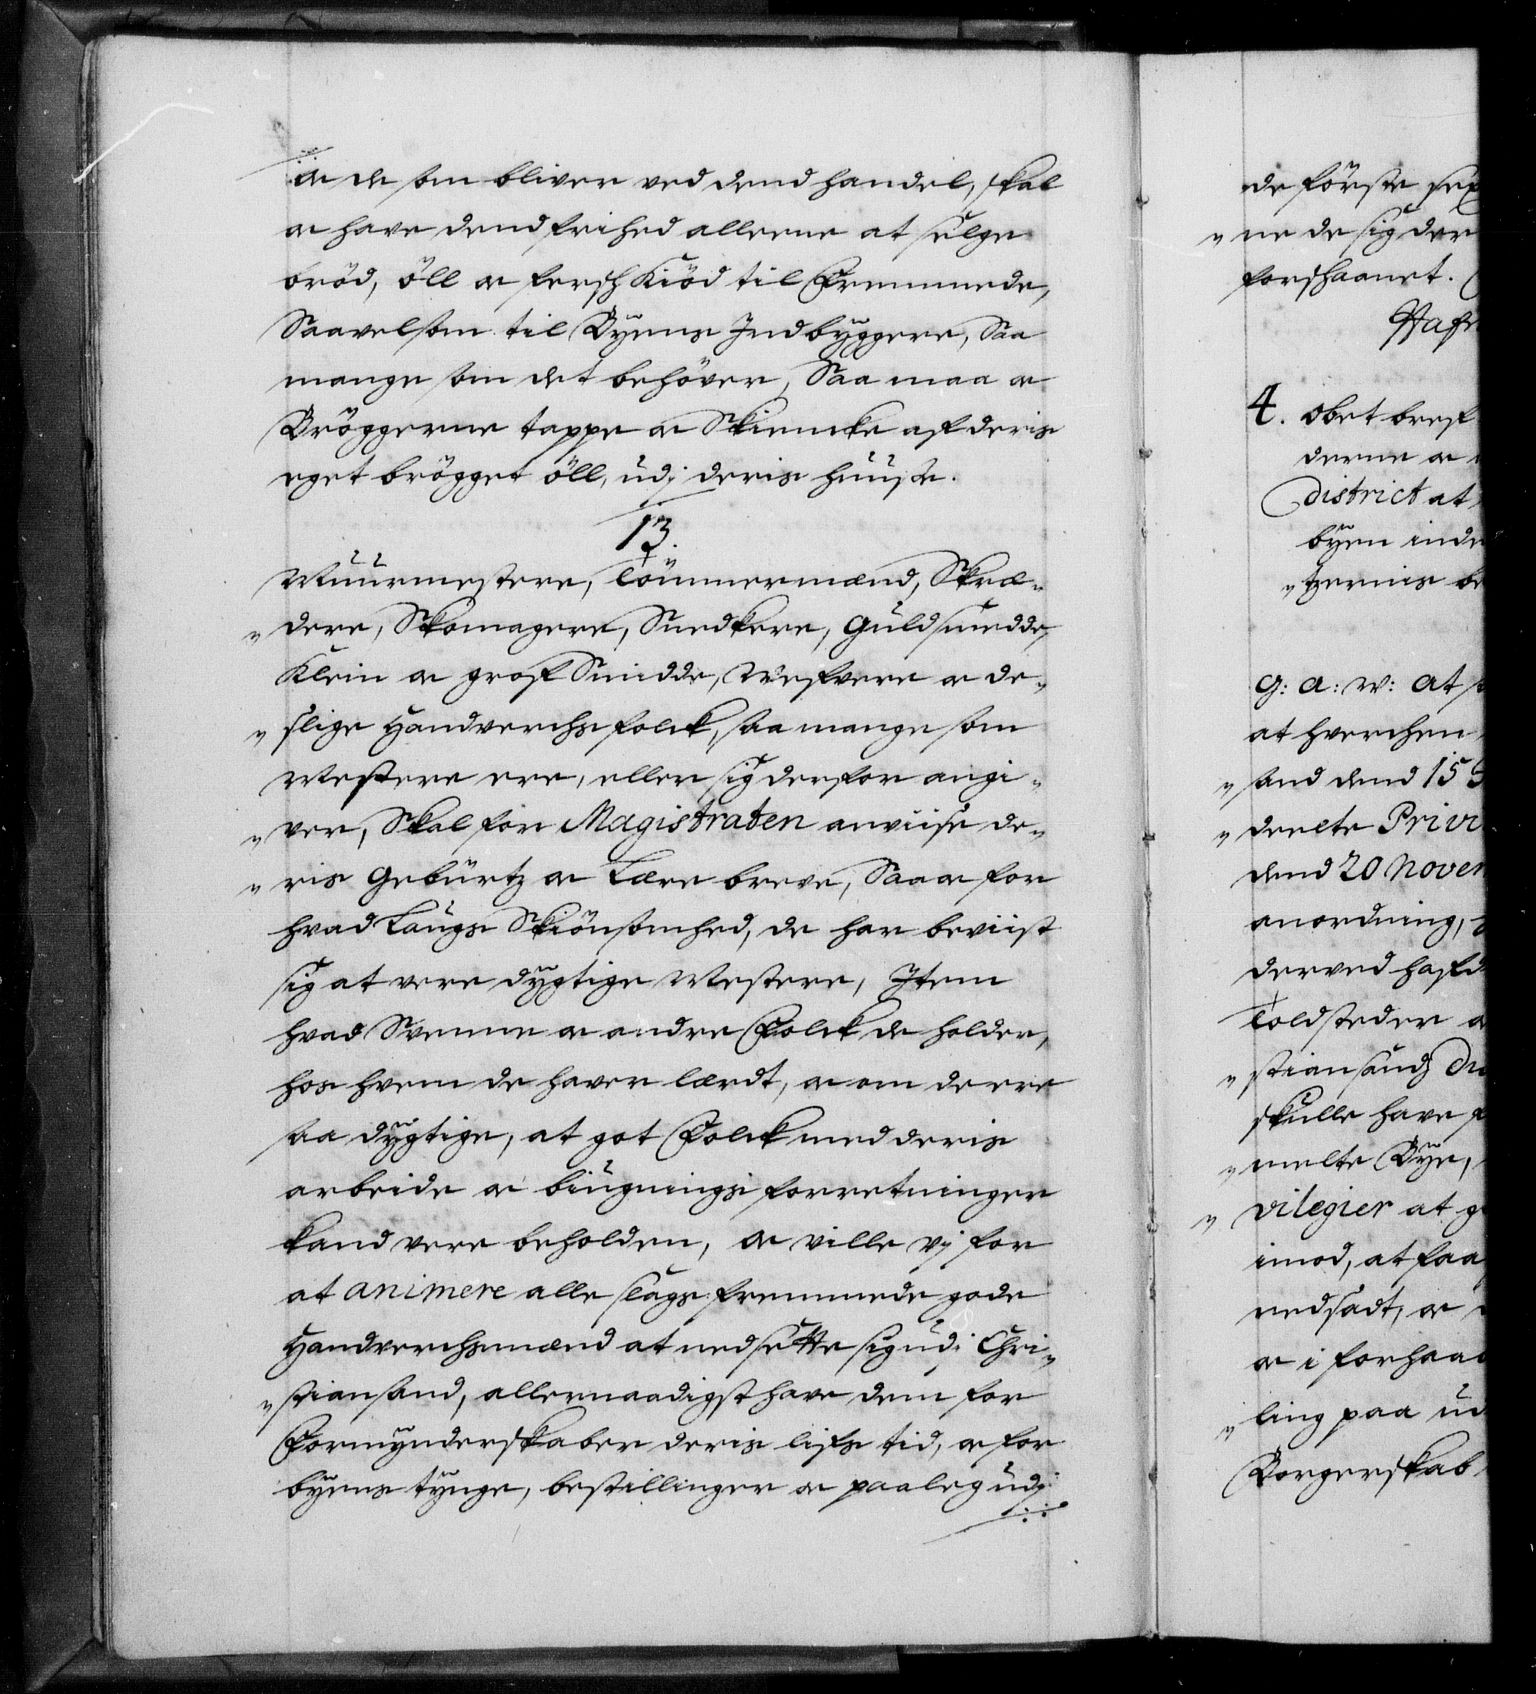 og de som bliver ved dend handel, skal
og have dend frihed alleene at selge
bröd, öll og fersch Kiöd til Fremmede,
Saavelsom til Byens Indbyggere, Saa
mange som det behöver, Saa maa og
Bröggerne tappe og Skiencke af deris
eget brögget öll, udj deris huuse.
13.
Muurmestere, Tömmermænd, Skræ-
dere, Skomagere, Snedkere, Guldsmedde,
Klein og grof Smidde, Vefvere og de-
slige Handverchsfolck, saa mange som
Mestere ere, eller sig derfor angi-
ver, Skal for Magistraten anviise de-
ris Gebürtz og Lære breve, Saa og for
hvad Laugs Skiönsomhed, de har beviist
sig at vere dygtige Mestere, Item
hvad Svenne og andre Folck de holder,
hos hvem de haver lærdt, og om de ere
saa dygtige, at got Folck med deris
arbeide og biugnings forretninger
kand vere beholden, og ville vj for
at animere alle slags fremmede gode
Handverchsmænd at nedsette sig udi Chri-
stiansand, allernaadigst have dem for
Formynderskaber deris lifs tid, og for
byens tynge, bestillinger og paaleg udj
de förste sex
ne de sig der
forschaanet.
Hafn
4. obet bref
derne og
District at
byen inde
G: A: W: At
at hverchen
sand dend 15
deelte Privi
dend 20 Novem
anordning,
derved hafd
Toldsteder og
stiansands Di
skulle have
melte Bye,
vilegier at
imod, at faa
nedsadt, og
og i forhaa
ling paa ud
Borgerskab